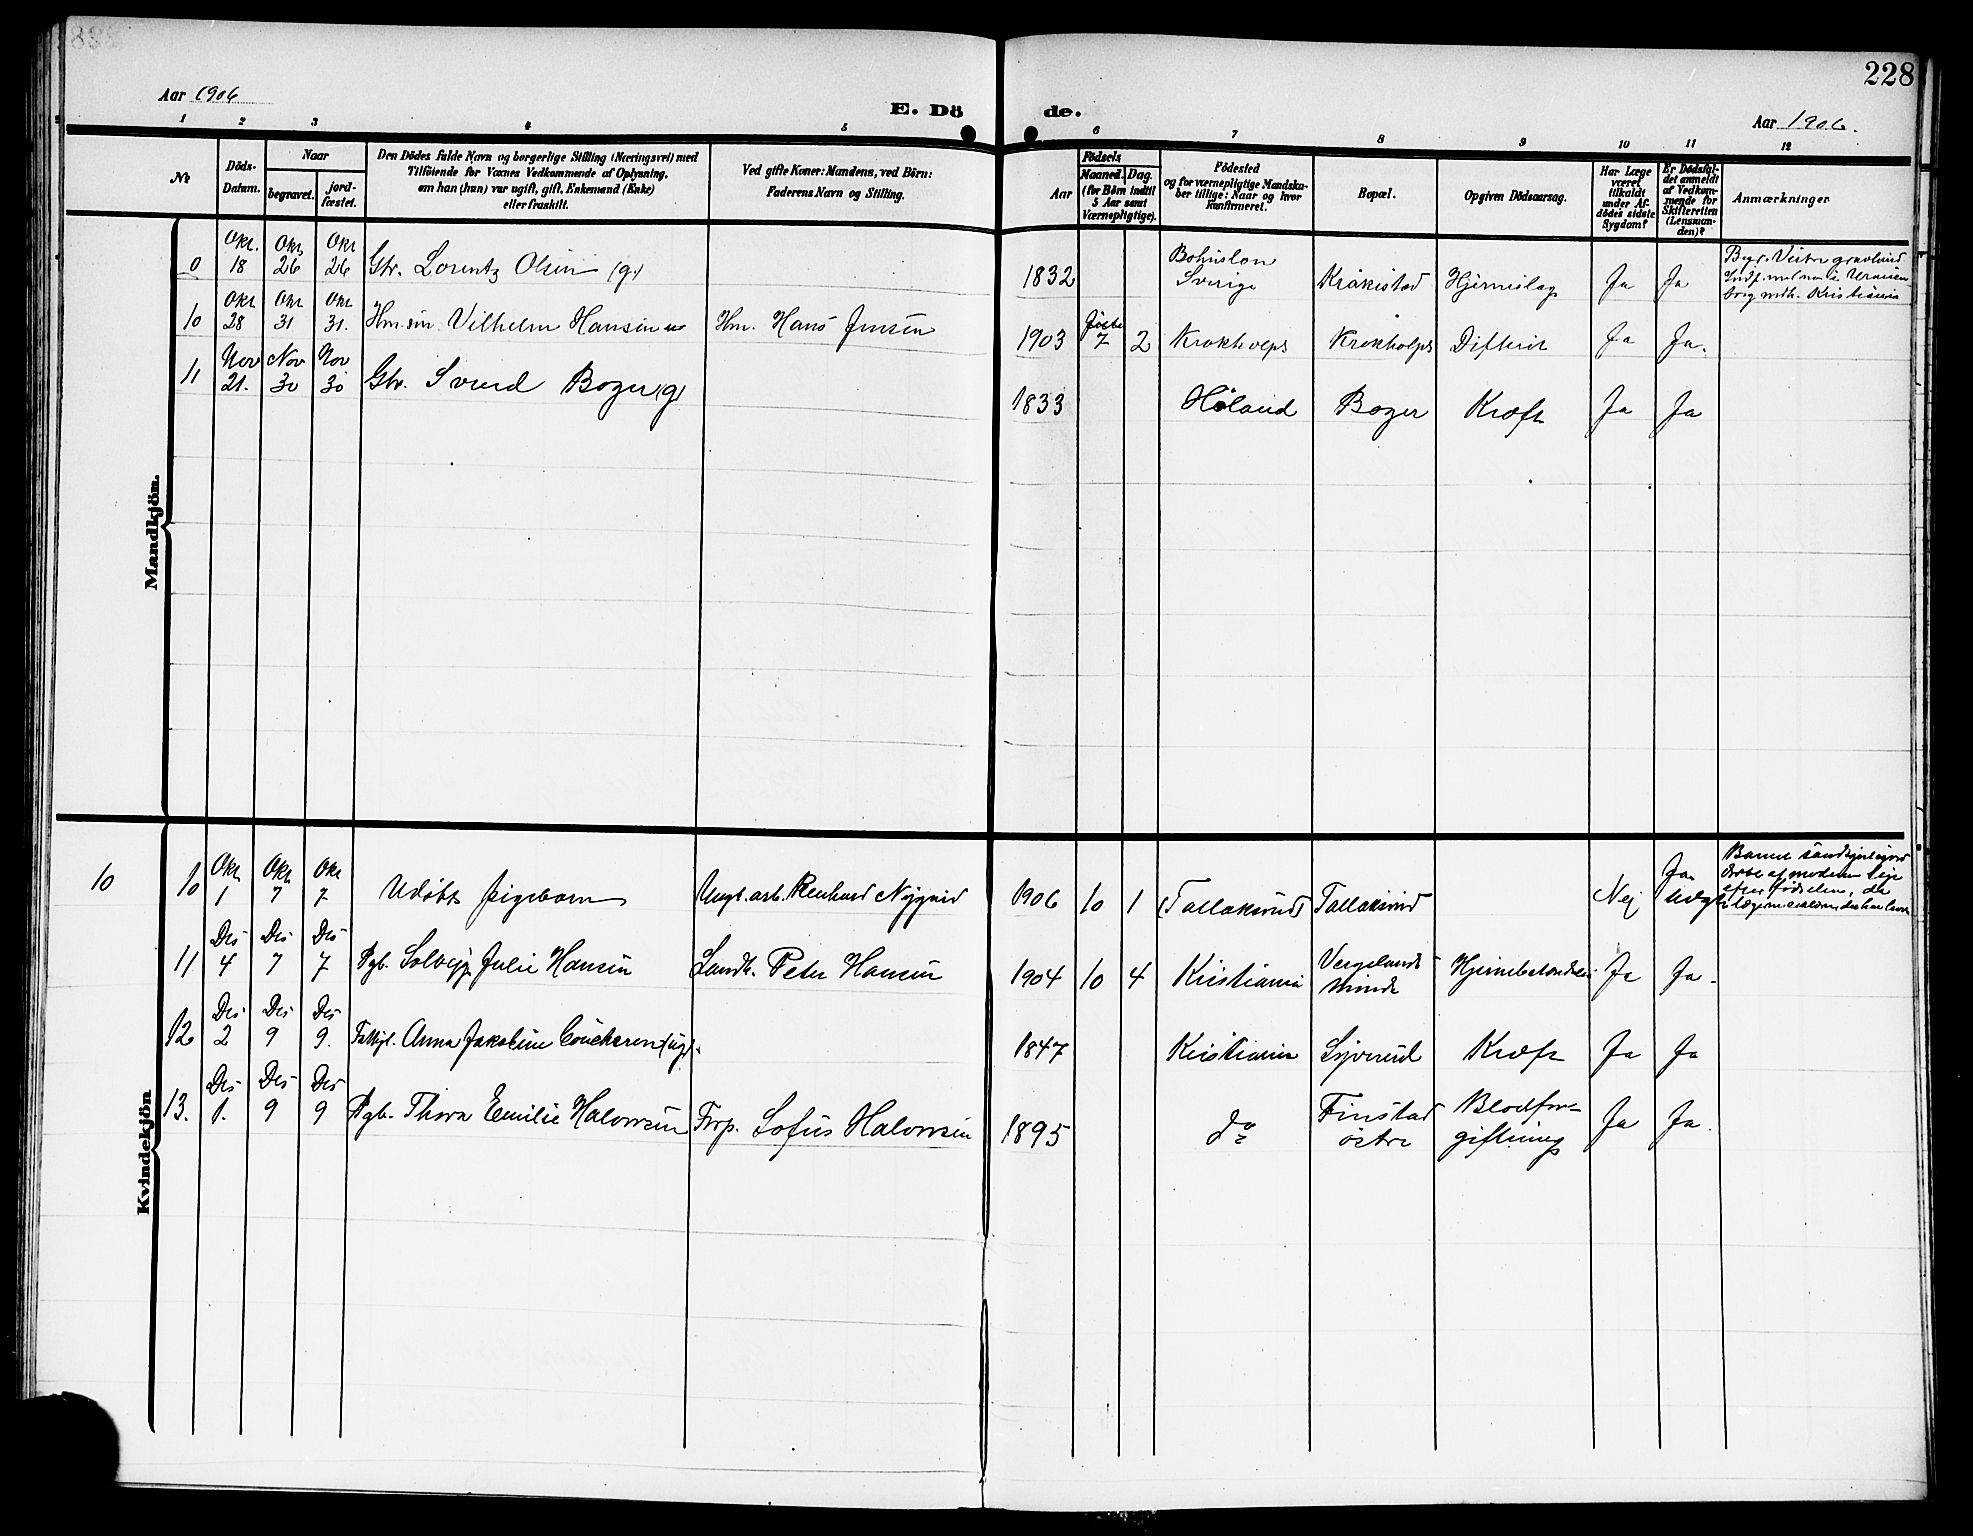 228
Aar 1906
E. Dö de.
Aar 1906.
1 2 3 4 5 6 7 8 9 10 11 12
Nr.
Döds-
Datum.
Naar
begravet.
jord-
fæstet.
Den Dödes fulde Navn og borgerlige Stilling (Næringsvei) med
Tilföiende for Voxnes Vedkommende af Oplysning,
om han (hun) var ugift, gift, Enkemand (Enke)
eller fraskilt.
Ved gifte Koner: Mandens, ved Börn:
Faderens Navn og Stilling.
Födsels
Aar
Maaned.
Dag.
(for Börn indtil
5 Aar samt
Værnepligtige).
Födested
og for værnepligtige Mandska-
ber tillige: Naar og hvor
konfirmeret.
Bopæl.
Opgiven Dödsaarsag.
Har Læge
været
tilkaldt
under Af-
dödes sidste
Sygdom?
Er Dödsfal-
det anmeldt
af Vedkom-
mende for
Skifteretten
(Lensman-
den)?
Anmærkninger
Mandkjön.
0 Okt. 18 Okt. 26 Okt 26 Gbr. Lorentz Olsen (g) 1832 Sverige Kråkistad Hjerneslag Ja Ja Begr. Vestre gravlund
Kristiania
10 Okt 28 Okt 31 Okt 31. Hm. søn Vilhelm Hansen Hm. Hans Jensen 1903 7 2 Krokholps Krokholps Difterit Ja Ja.
11 Nov 21. Nov 30 Nov 30 Gbr. Svend Boger (g) 1833 Høland Boger Kræft Ja Ja
Kvindekjön
10 10 Okt 1 Okt 7 Okt 7 Udøbt pigebarn Ungk. arb. Renhard Nygård 1906 10 1 (Tallaksrud) Tallaksrud Nej Ja
Barnet
døde af moderen
efter fødselen, da
11 Des 4 Des 7 Des 7 Pgb. Solveig Julie Hansen Landh. Peter Hansen 1904 10 4 Kristiania Vergelands
minde Hjernebetændelse Ja Ja.
12 Des 2 Des 9 Des 9. Fattigl. Anna Jakobine Coucheron (ug). 1847 Kristiania Syverud Kræft Ja Ja
13. Des 1. Des 9 Des 9 Pgb. Thora Emilie Halvorsen Frp. Sofus Halvorsen 1895 do Finstad
østre Blodfor-
giftning Ja Ja.